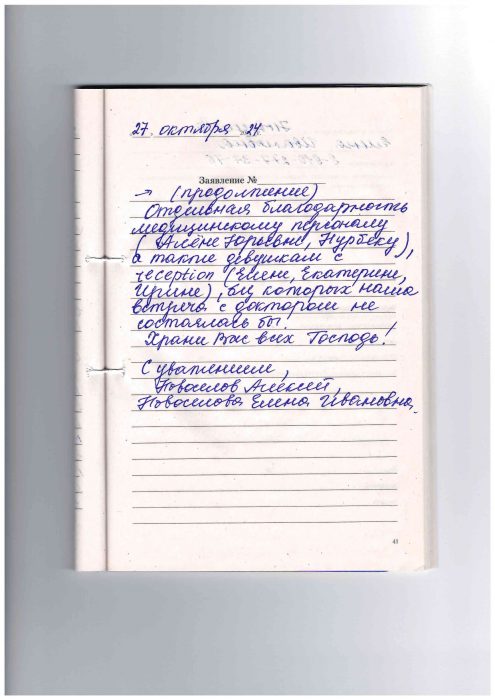 27 октября 24.
Заявление №
→ (продолжение)
Отдельная благодарность
медицинскому персоналу
(Алёне Юрьевне, Нурбеку),
а также девушкам с
reception (Елене, Екатерине,
Ирине), без которых наша
встреча с доктором не
состоялась бы!
Храни Вас всех Господь!
С уважением,
Новоселов Алексей,
Новоселова Елена Ивановна.
41